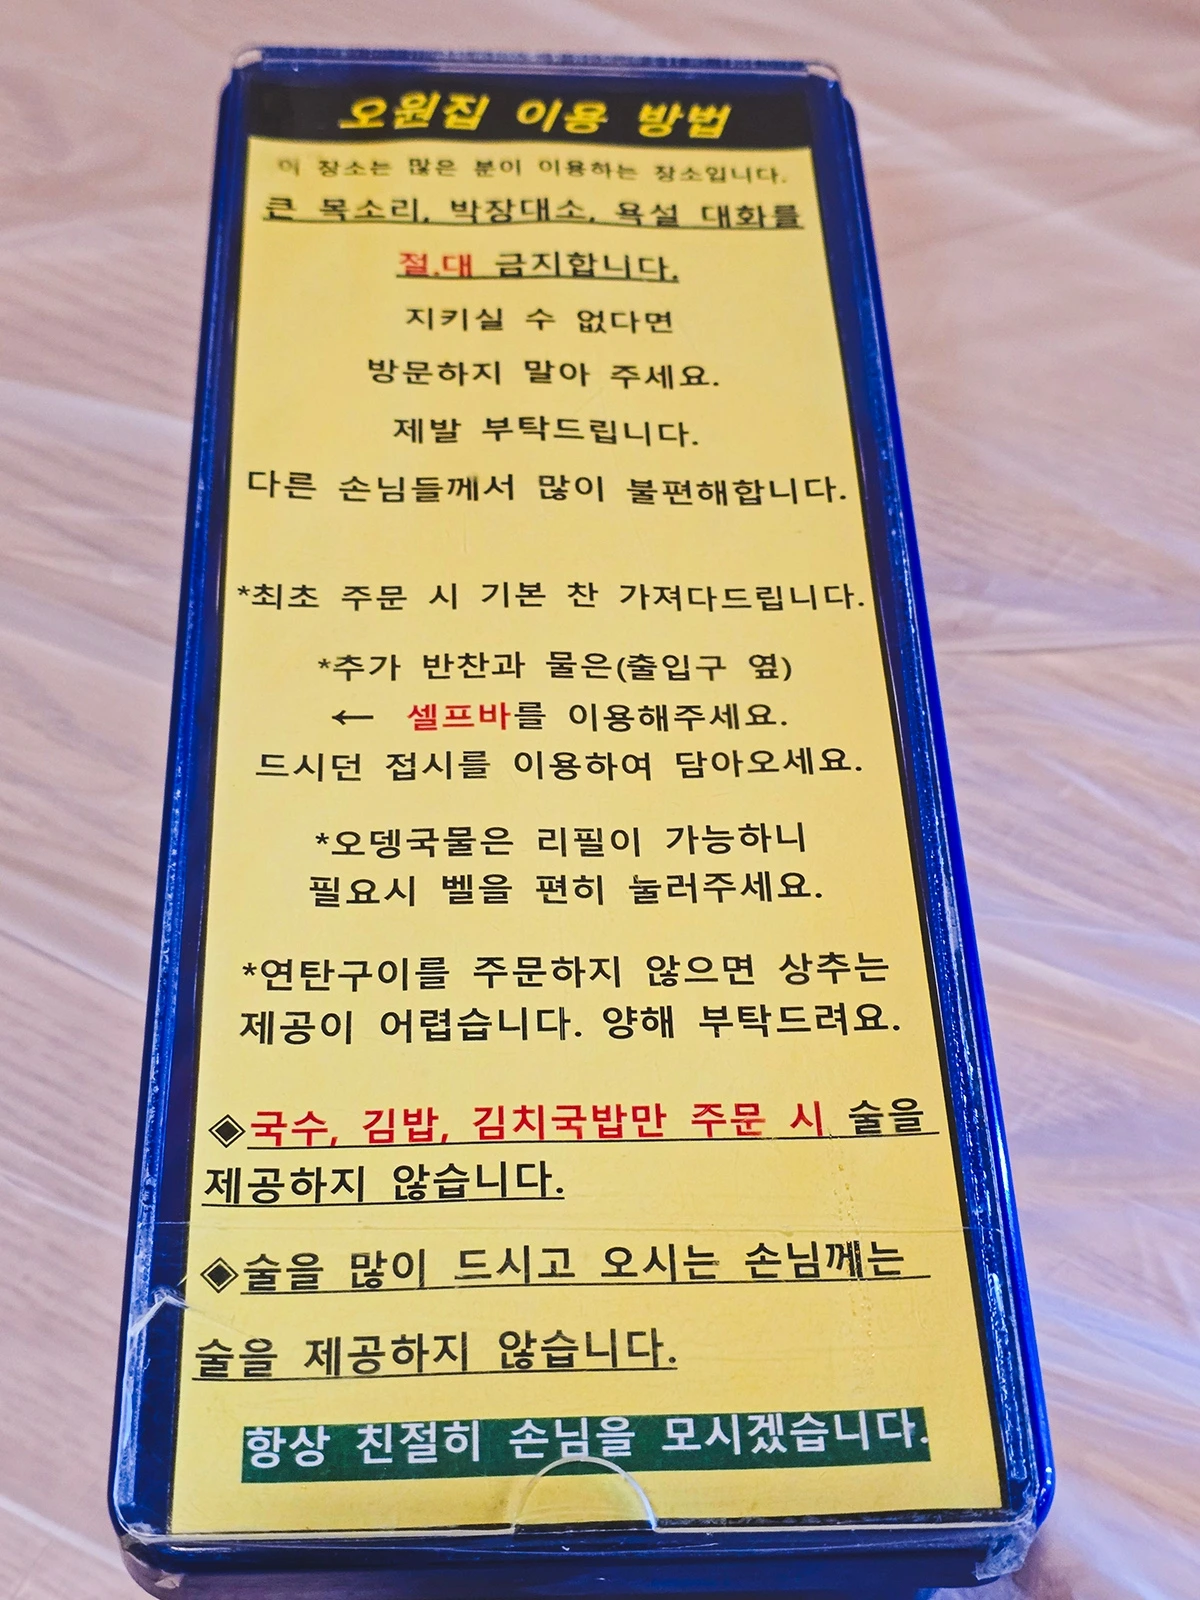 오원집 이용 방법
이 장소는 많은 분이 이용하는 장소입니다.
큰 목소리, 박장대소, 욕설 대화를
절.대 금지합니다.
지키실 수 없다면
방문하지 말아 주세요.
제발 부탁드립니다.
다른 손님들께서 많이 불편해합니다.
*최초 주문 시 기본 찬 가져다드립니다.
*추가 반찬과 물은(출입구 옆)
← 셀프바를 이용해주세요.
드시던 접시를 이용하여 담아오세요.
*오뎅국물은 리필이 가능하니
필요시 벨을 편히 눌러주세요.
*연탄구이를 주문하지 않으면 상추는
제공이 어렵습니다. 양해 부탁드려요.
◈국수, 김밥, 김치국밥만 주문 시 술을
제공하지 않습니다.
◈술을 많이 드시고 오시는 손님께는
술을 제공하지 않습니다.
항상 친절히 손님을 모시겠습니다.